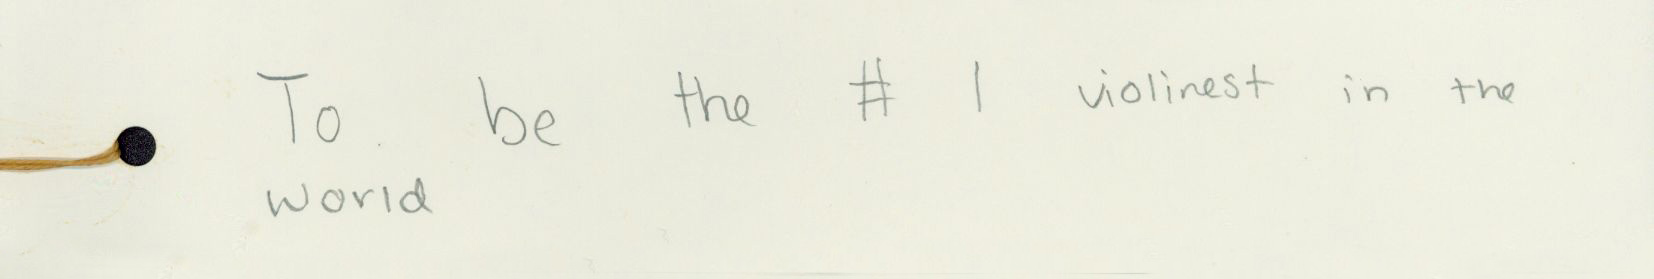 To be the # 1 violinest in the
world